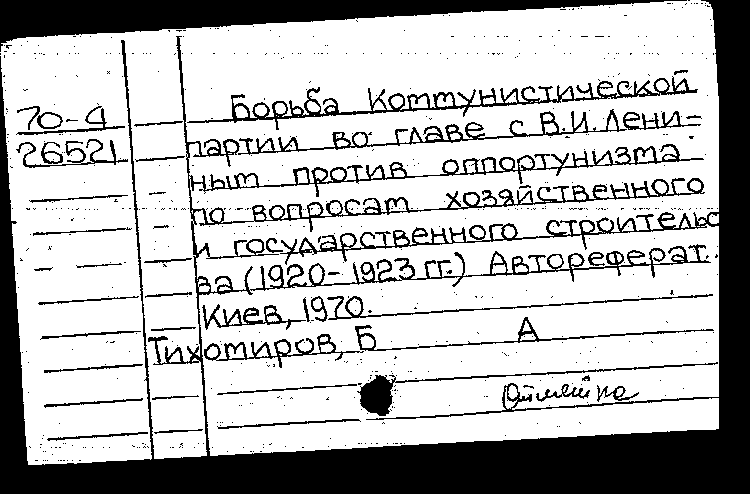 70-4
26521
Борьба Коммунистической
партии во главе с В.И.Лени=
ным против оппортунизма
по вопросам хозяйственного
и государственного строительс
ва (1920-1923 гг.) Автореферат.
Киев, 1970.
Тихомиров, Б А